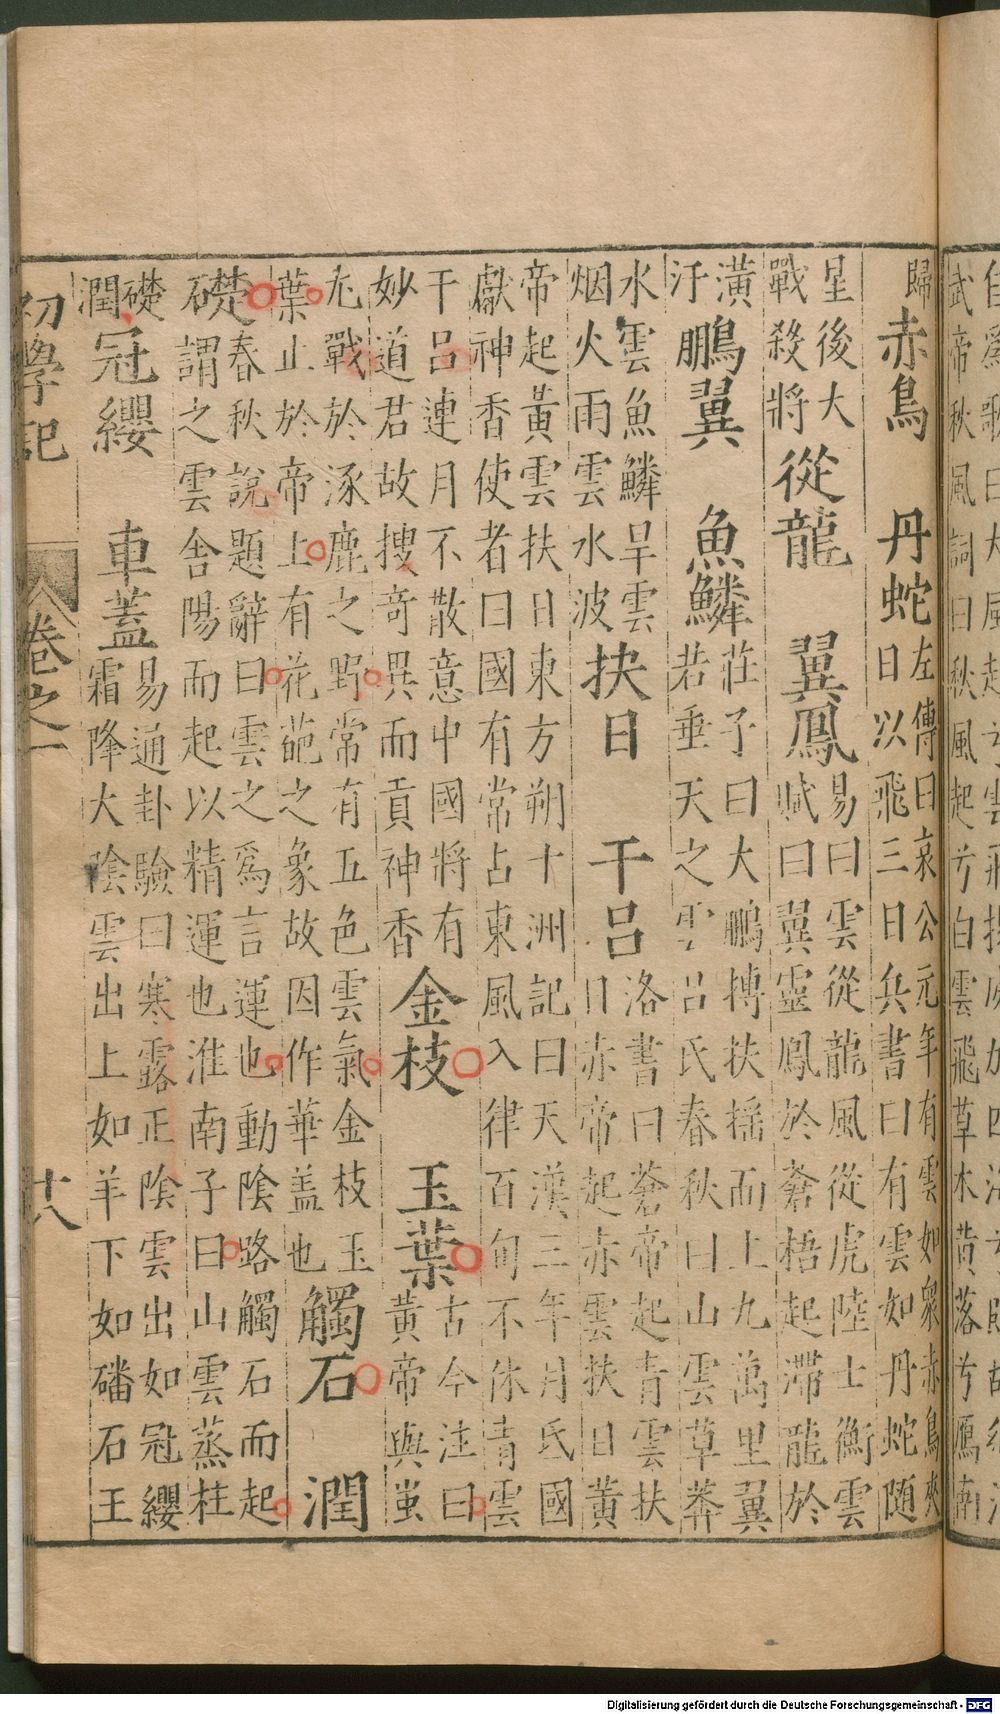 武帝秋風詞曰秋風起兮白雲飛草木黄落兮鴈南
歸
赤鳥　丹蛇
左傳曰哀公元年有雲如衆赤鳥夾
日以飛三日兵書曰有雲如丹蛇随
星後大
戰殺將
從龍　翼鳳
易曰雲從龍風從虎陸士衡雲
賦曰翼靈鳳於蒼梧起滯龍於
潢
汙
鵬翼　魚鱗
莊子曰大鵬摶扶摇而上九萬里翼
若垂天之雲吕氏春秋曰山雲草莽
水雲魚鱗旱雲
烟火雨雲水波
抉日　干呂
洛書曰蒼帝起青雲扶
日赤帝起赤雲扶日黄
帝起黄雲扶日東方朔十洲記曰天漢三年月氏國
獻神香使者曰國有常占東風入律百旬不休青雲
干呂連月不散意中國將有
妙道君故搜奇異而貢神香
金枝　玉葉
古今注曰
黄帝與蚩
尤戰於涿鹿之野常有五色雲氣金枝玉
葉止於帝上有花葩之象故因作華盖也
觸石　潤
礎
春秋說題辭曰雲之爲言運也動陰路觸石而起
謂之雲含陽而起以精運也淮南子曰山雲蒸柱
礎
潤
冠纓　車蓋
易通卦驗曰寒露正陰雲出如冠纓
霜降大陰雲出上如羊下如磻石王
初學記　卷之一　十八
Digitalisierung gefördert durch die Deutsche Forschungsgemeinschaft - DFG